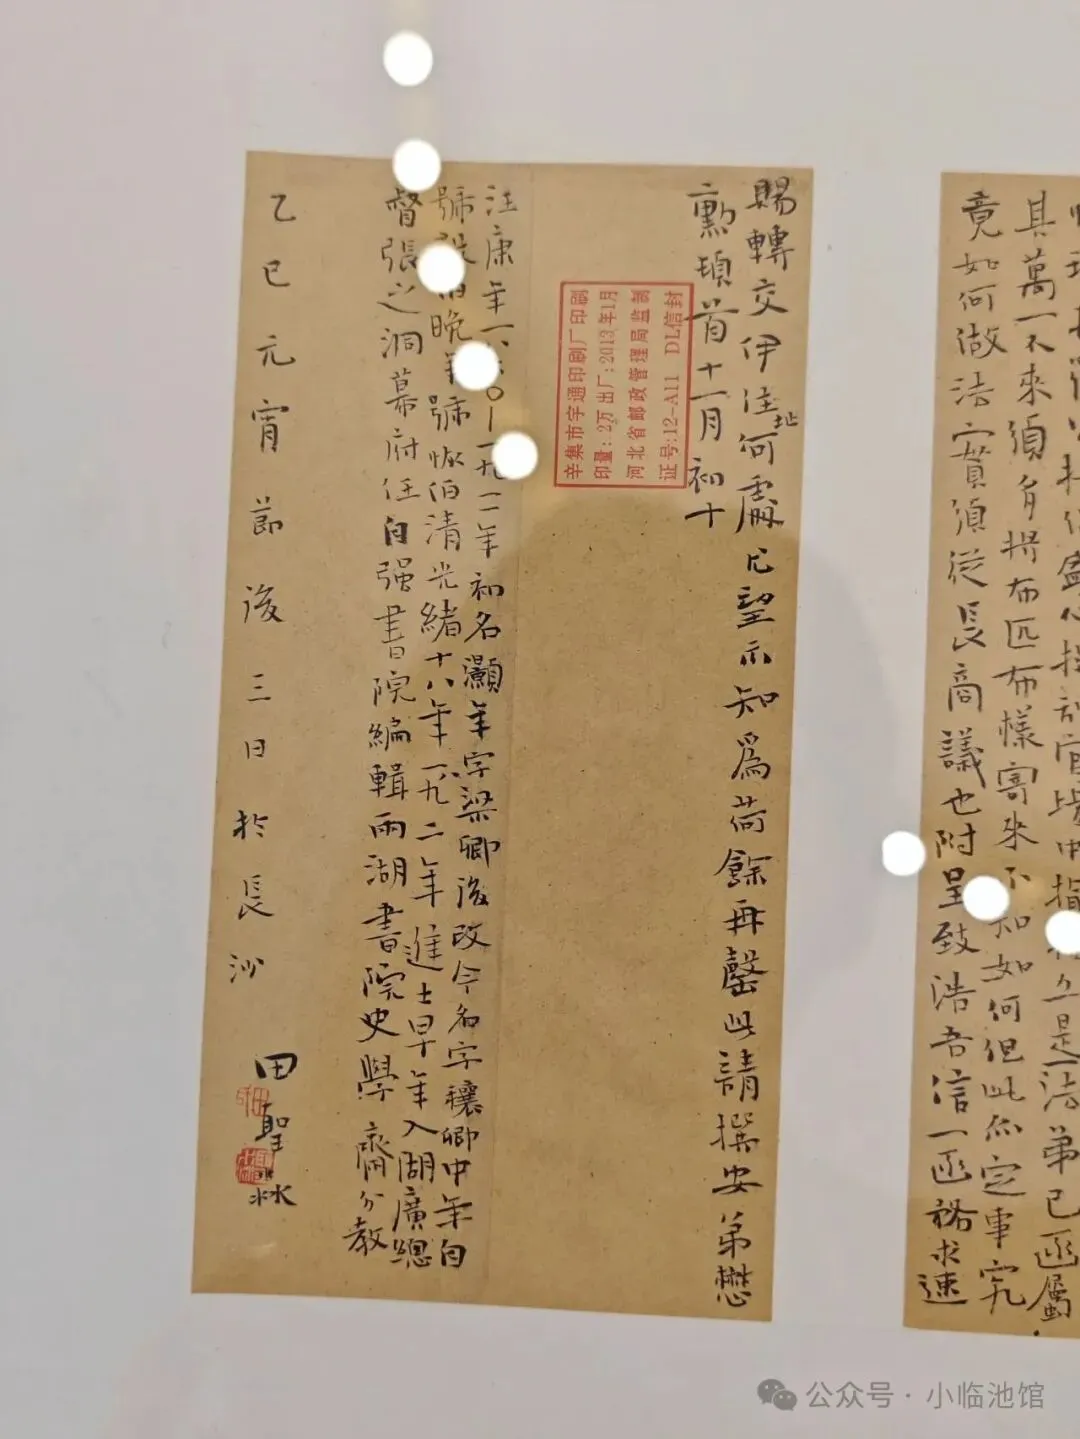 具萬一不來須多擠布匹布樣寄來不知如何但此亦定事究
竟如何做法實須從長商議也附呈致浩吾信一函務求速
賜轉交伊住址何處凢望示知為荷餘再罄此請撰安弟懋
勳頓首十一月初十
辛集市宇通印刷厂印刷
印量:2万 出厂:2013年1月
河北省邮政管理局监制
证号:12-A11 DL信封
汪康年一八六〇一一九一一年初名灝年字梁卿後改今名字穰卿中年自
號毅伯晚年號恢伯清光緒十八年一八九二年進士早年入湖廣總
督張之洞幕府任自强書院編輯兩湖書院史學齋分教
乙巳元宵節後三日於長沙 田聖霖
公众号·小临池馆